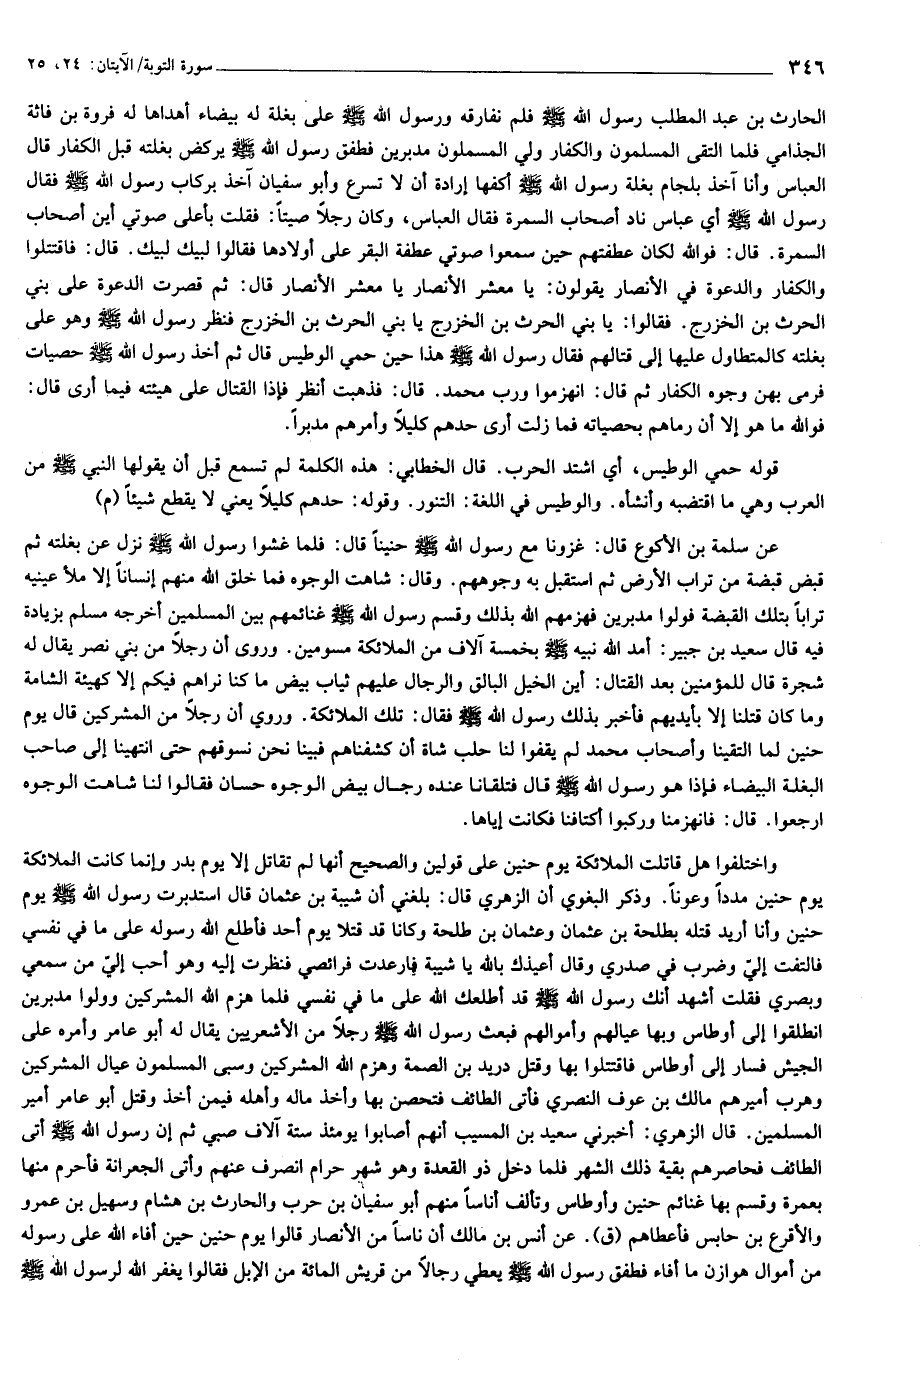 ٣٤٦ ــــــــــــــــــــــــــــــــــــــــــــــــــــــــــــــــ سورة التوبة/ الآيتان: ٢٤، ٢٥
الحارث بن عبد المطلب رسول الله ﷺ فلم نفارقه ورسول الله ﷺ على بغلة له بيضاء أهداها له فروة بن فاثة
الجذامي فلما التقى المسلمون والكفار ولي المسملون مدبرين فطفق رسول الله ﷺ يركض بغلته قبل الكفار قال
العباس وأنا آخذ بلجام بغلة رسول الله ﷺ أكفها إرادة أن لا تسرع وأبو سفيان آخذ بركاب رسول الله ﷺ فقال
رسول الله ﷺ أي عباس ناد أصحاب السمرة فقال العباس، وكان رجلاً صيتاً: فقلت بأعلى صوتي أين أصحاب
السمرة. قال: فوالله لكان عطفتهم حين سمعوا صوتي عطفة البقر على أولادها فقالوا لبيك لبيك. قال: فاقتتلوا
والكفار والدعوة في الأنصار يقولون: يا معشر الأنصار يا معشر الأنصار قال: ثم قصرت الدعوة على بني
الحرث بن الخزرج. فقالوا: يا بني الحرث بن الخزرج يا بني الحرث بن الخزرج فنظر رسول الله ﷺ وهو على
بغلته كالمتطاول عليها إلى قتالهم فقال رسول الله ﷺ هذا حين حمي الوطيس قال ثم أخذ رسول الله ﷺ حصيات
فرمى بهن وجوه الكفار ثم قال: انهزموا ورب محمد. قال: فذهبت أنظر فإذا القتال على هيئته فيما أرى قال:
فوالله ما هو إلا أن رماهم بحصياته فما زلت أرى حدهم كليلاً وأمرهم مدبراً.
قوله حمي الوطيس، أي اشتد الحرب. قال الخطابي: هذه الكلمة لم تسمع قبل أن يقولها النبي ﷺ من
العرب وهي ما اقتضبه وأنشأه. والوطيس في اللغة: التنور. وقوله: حدهم كليلاً يعني لا يقطع شيئاً (م)
عن سلمة بن الأكوع قال: غزونا مع رسول الله ﷺ حنيناً قال: فلما غشوا رسول الله ﷺ نزل عن بغلته ثم
قبض قبضة من تراب الأرض ثم استقبل به وجوههم. وقال: شاهت الوجوه فما خلق الله منهم إنساناً إلا ملأ عينيه
تراباً بتلك القبضة فولوا مدبرين فهزمهم الله بذلك وقسم رسول الله ﷺ غنائمهم بين المسلمين أخرجه مسلم بزيادة
فيه قال سعيد بن جبير: أمد الله نبيه ﷺ بخمسة آلاف من الملائكة مسومين. وروى أن رجلاً من بني نصر يقال له
شجرة قال للمؤمنين بعد القتال: أين الخيل البالق والرجال عليهم ثياب بيض ما كنا نراهم فيكم إلا كهيئة الشامة
وما كان قتلنا إلا بأيديهم فأخبر بذلك رسول الله ﷺ فقال: تلك الملائكة. وروي أن رجلاً من المشركين قال يوم
حنين لما التقينا وأصحاب محمد لم يقفوا لنا حلب شاة أن كشفناهم فبينا نحن نسوقهم حتى انتهينا إلى صاحب
البغلة البيضاء فإذا هو رسول الله ﷺ قال فتلقانا عنده رجال بيض الوجوه حسان فقالوا لنا شاهت الوجوه
ارجعوا. قال: فانهزمنا وركبوا أكتافنا فكانت إياها.
واختلفوا هل قاتلت الملائكة يوم حنين على قولين والصحيح أنها لم تقاتل إلا يوم بدر وإنما كانت الملائكة
يوم حنين مدداً وعوناً. وذكر البغوي أن الزهري قال: بلغني أن شيبة بن عثمان قال استدبرت رسول الله ﷺ يوم
حنين وأنا أريد قتله بطلحة بن عثمان وعثمان بن طلحة وكانا قد قتلا يوم أحد فأطلع الله رسوله على ما في نفسي
فالتفت إليّ وضرب في صدري وقال أعيذك بالله يا شيبة فارعدت فرائصي فنظرت إليه وهو أحب إليّ من سمعي
وبصري فقلت أشهد أنك رسول الله ﷺ قد أطلعك الله على ما في نفسي فلما هزم الله المشركين وولوا مدبرين
انطلقوا إلى أوطاس وبها عيالهم وأموالهم فبعث رسول الله ﷺ رجلاً من الأشعريين يقال له أبو عامر وأمره على
الجيش فسار إلى أوطاس فاقتتلوا بها وقتل دريد بن الصمة وهزم الله المشركين وسبى المسلمون عيال المشركين
وهرب أميرهم مالك بن عوف النصري فأتى الطائف فتحصن بها وأخذ ماله وأهله فيمن أخذ وقتل أبو عامر أمير
المسلمين. قال الزهري: أخبرني سعيد بن المسيب أنهم أصابوا يومئذ ستة آلاف صبي ثم إن رسول الله ﷺ أتى
الطائف فحاصرهم بقية ذلك الشهر فلما دخل ذو القعدة وهو شهر حرام انصرف عنهم وأتى الجعرانة فأحرم منها
بعمرة وقسم بها غنائم حنين وأوطاس وتألف أناساً منهم أبو سفيان بن حرب والحارث بن هشام وسهيل بن عمرو
والأقرع بن حابس فأعطاهم (ق). عن أنس بن مالك أن ناساً من الأنصار قالوا يوم حنين حين أفاء الله على رسوله
من أموال هوازن ما أفاء فطفق رسول الله ﷺ يعطي رجالاً من قريش المائة من الإبل فقالوا يغفر الله لرسول الله ﷺ